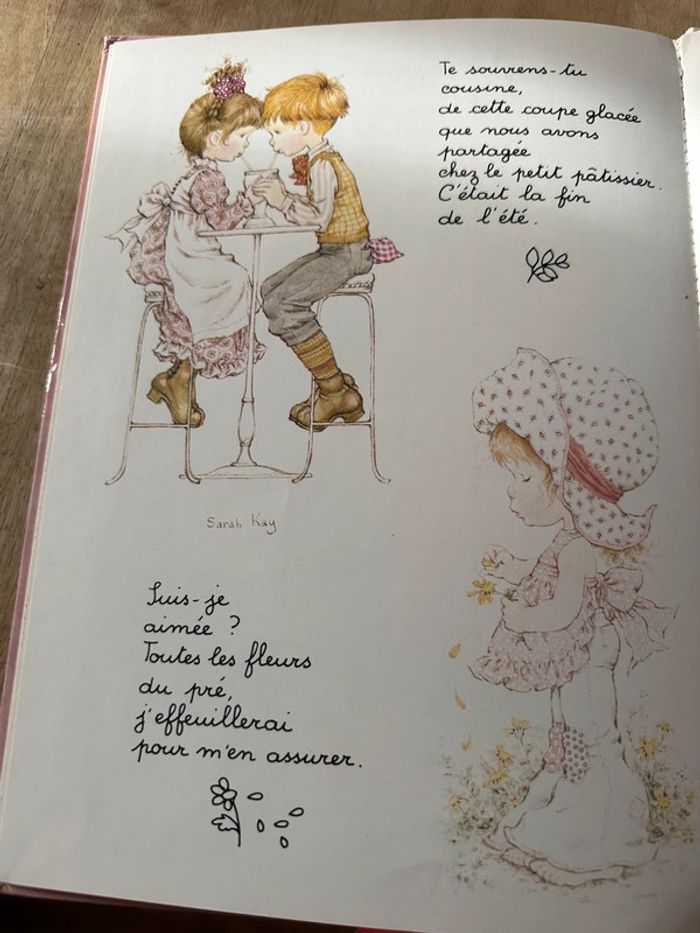 Te souviens-tu
cousine,
de cette coupe glacée
que nous avons
partagée
chez le petit pâtissier.
C'était la fin
de l'été.
Sarah Kay
Suis-je
aimée ?
Toutes les fleurs
du pré,
j'effeuillerai
pour m'en assurer.